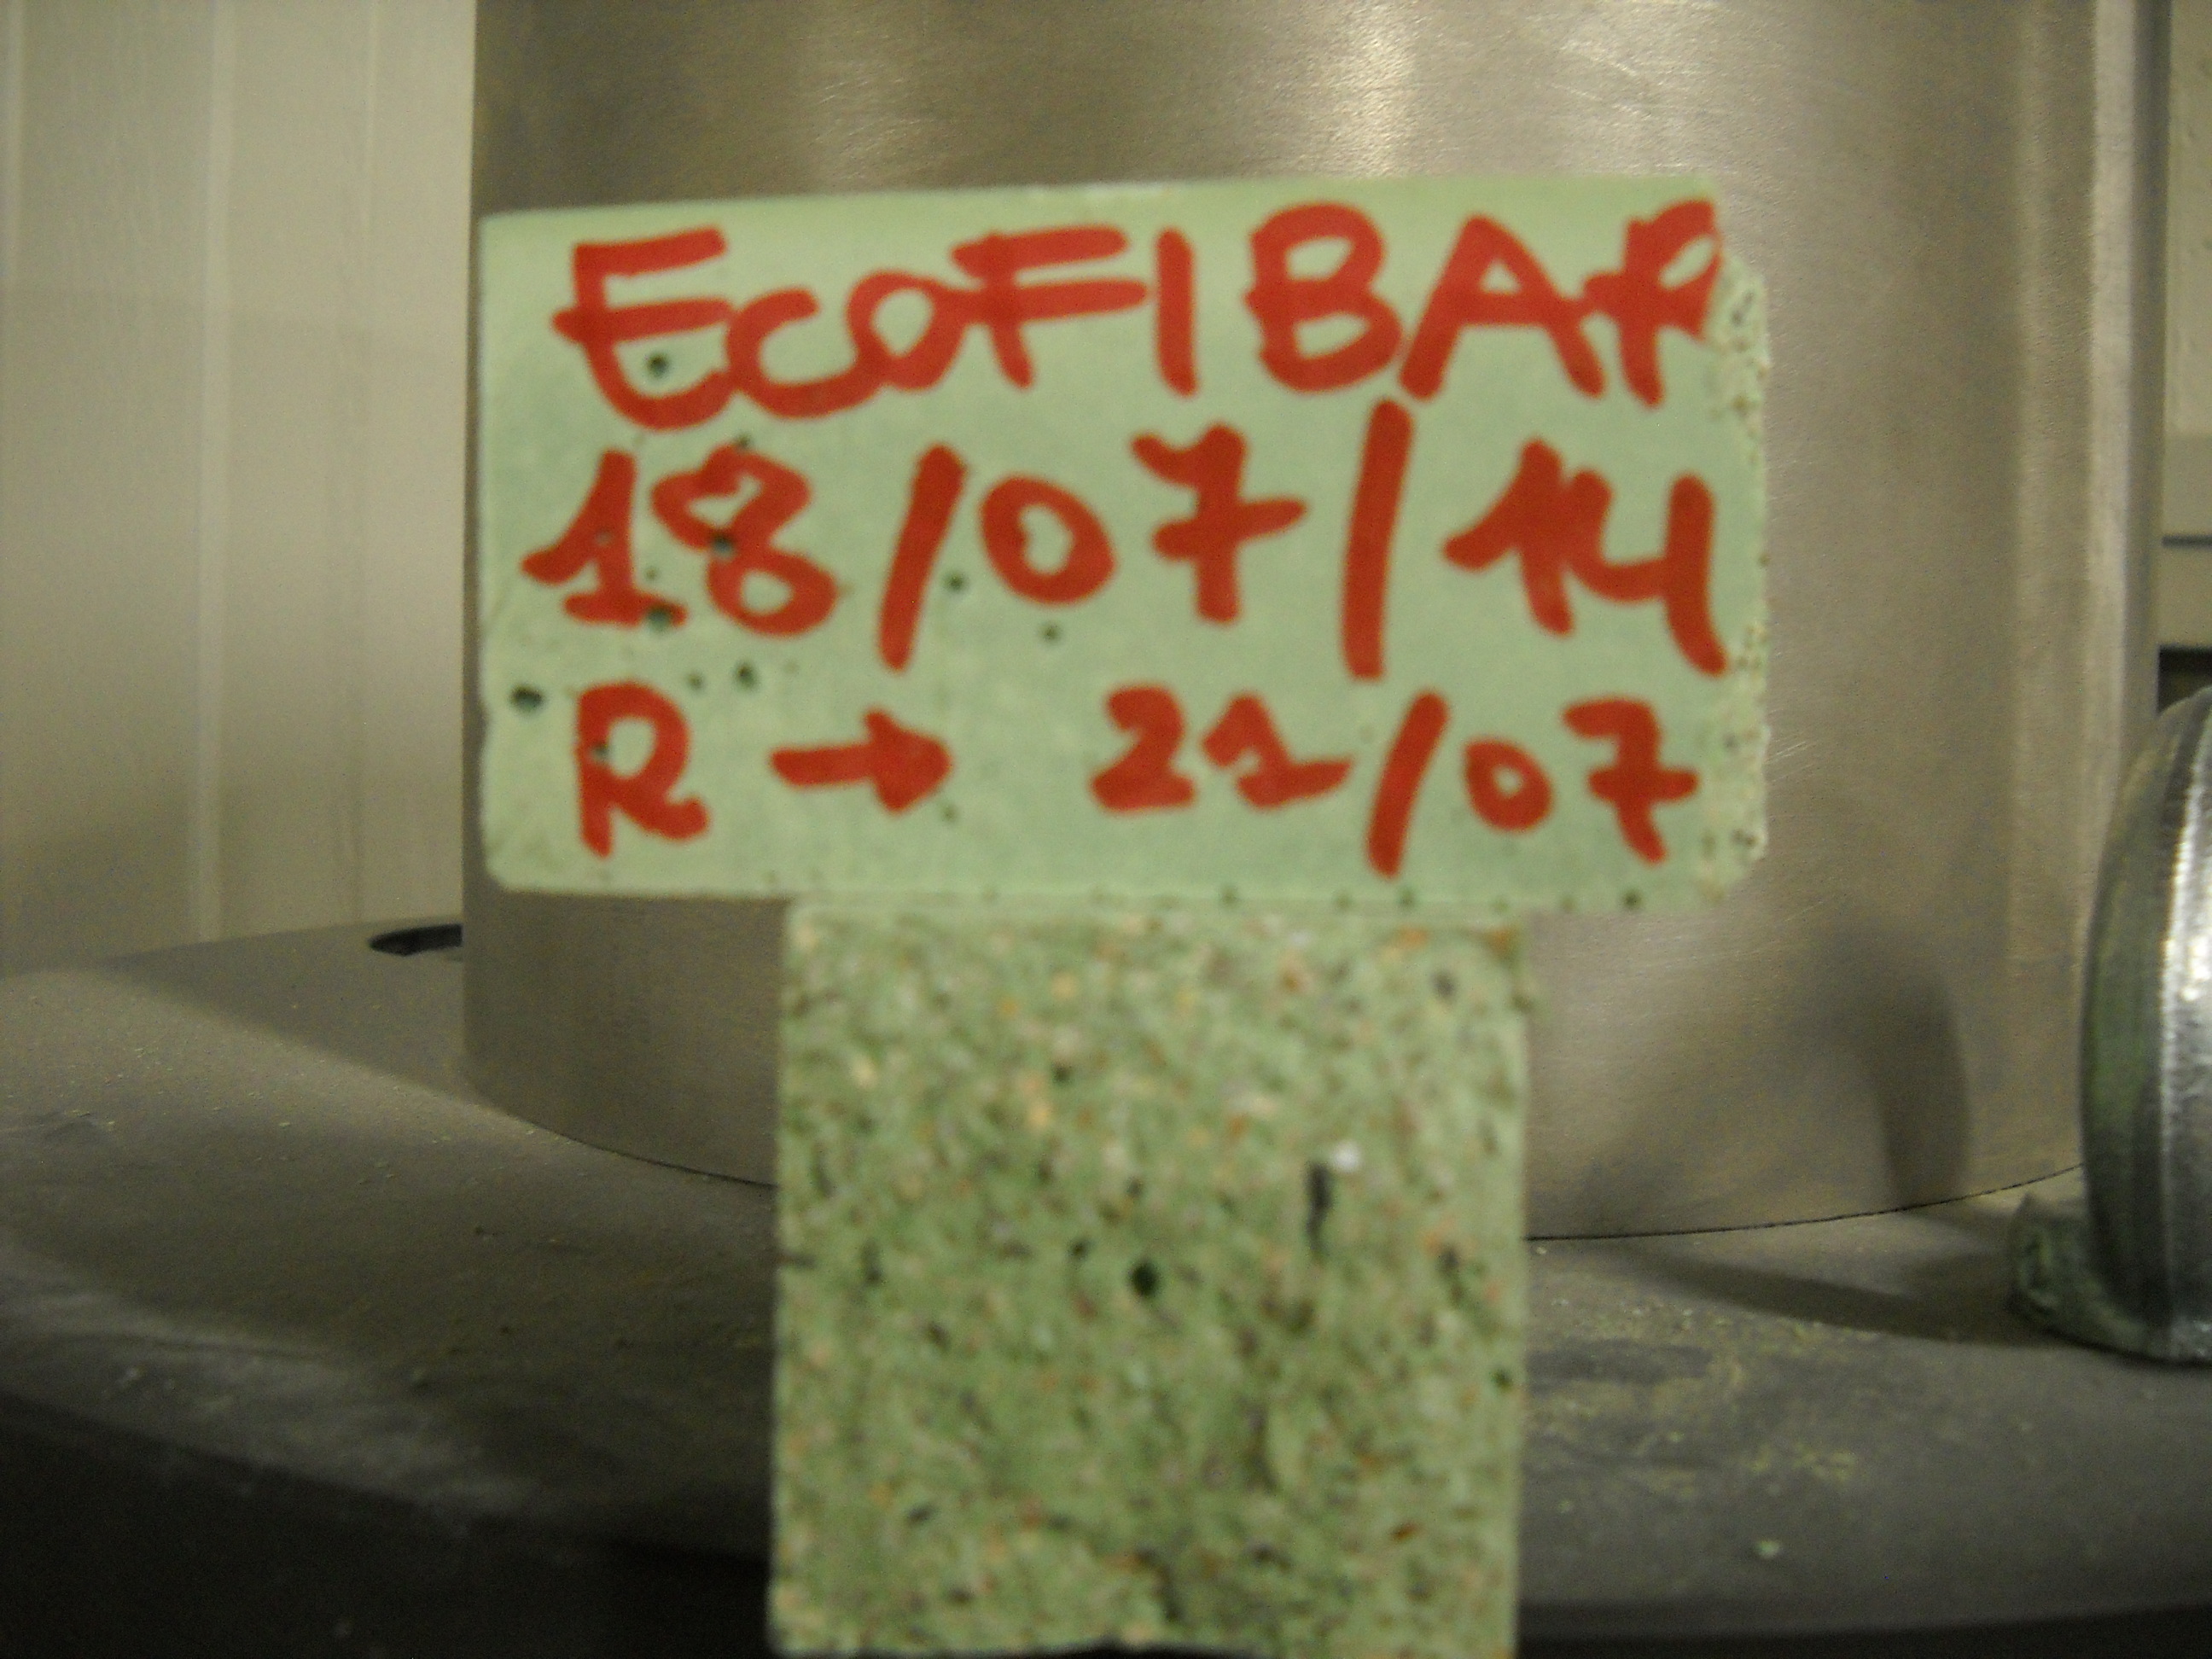 EcoFIBAR
18/07/14
R → 21/07